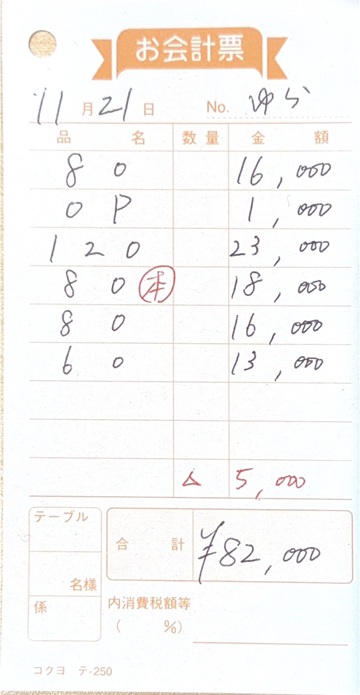 お会計票
11月21日 No. ゆら
品名 数量 金額
80 16,000
OP 1,000
120 23,000
80 本 18,000
80 16,000
60 13,000
△ 5,000
テーブル
名様
係
合計 ¥82,000
内消費税額等
( %)
コクヨ テ-250